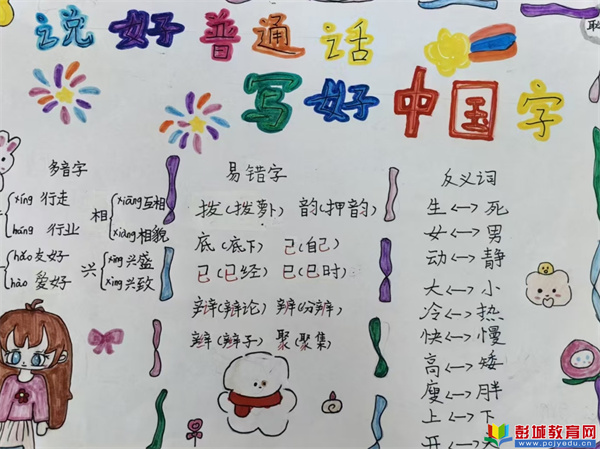 说好普通话
写好中国字
多音字
xíng 行走
háng 行业
hǎo 友好
hào 爱好
相
xiāng 互相
xiàng 相貌
兴
xīng 兴盛
xìng 兴致
易错字
拨(拨萝卜) 韵(押韵)
底(底下) 己(自己)
已(已经) 巳(巳时)
辩(辩论) 辨(分辨)
辫(辫子) 聚(聚集)
反义词
生<-->死
女<-->男
动<-->静
大<-->小
冷<-->热
快<-->慢
高<-->矮
瘦<-->胖
上<-->下
开<-->
彭城教育网
www.pcjyedu.cn